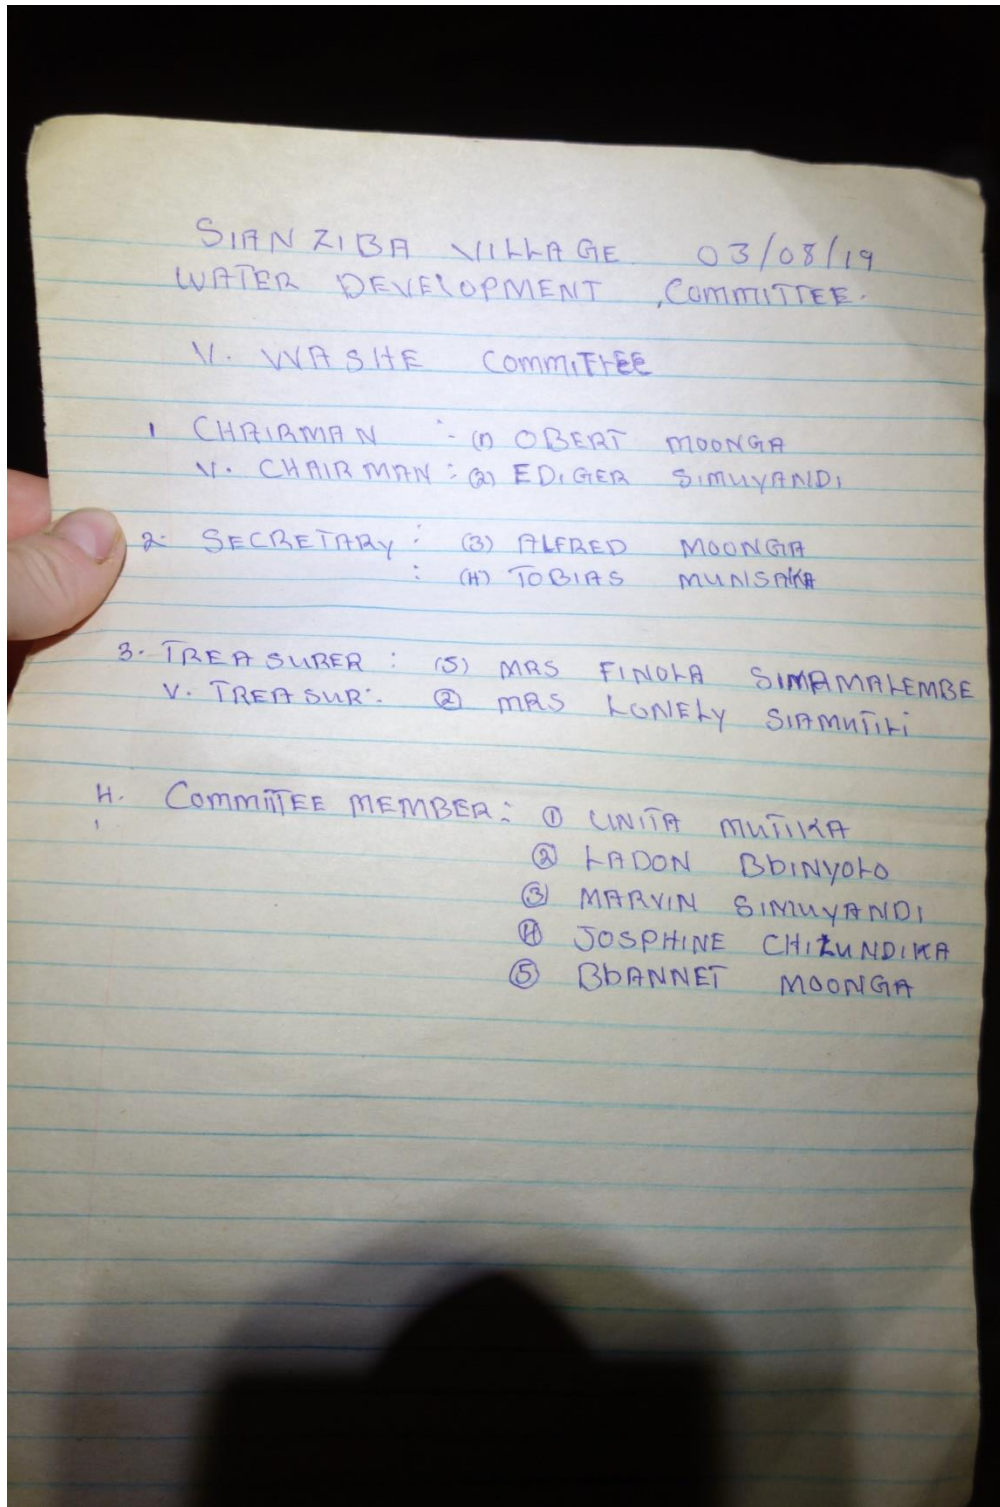 SIANZIBA VILLAGE 03/08/19
WATER DEVELOPMENT COMMITTEE.
V. WASHE COMMITTEE
1 CHAIRMAN :- (1) OBERT MOONGA
V. CHAIRMAN : (2) EDIGER SIMUYANDI
2. SECRETARY : (3) ALFRED MOONGA
: (4) TOBIAS MUNSAKA
3. TREASURER : (5) MRS FINOLA SIMAMALEMBE
V. TREASUR: ② MRS LONELY SIAMUTILI
4. COMMITTEE MEMBER: ① UNITA MUTIKA
② LADON BBINYOLO
③ MARVIN SIMUYANDI
④ JOSPHINE CHIZUNDIKA
⑤ BBANNET MOONGA